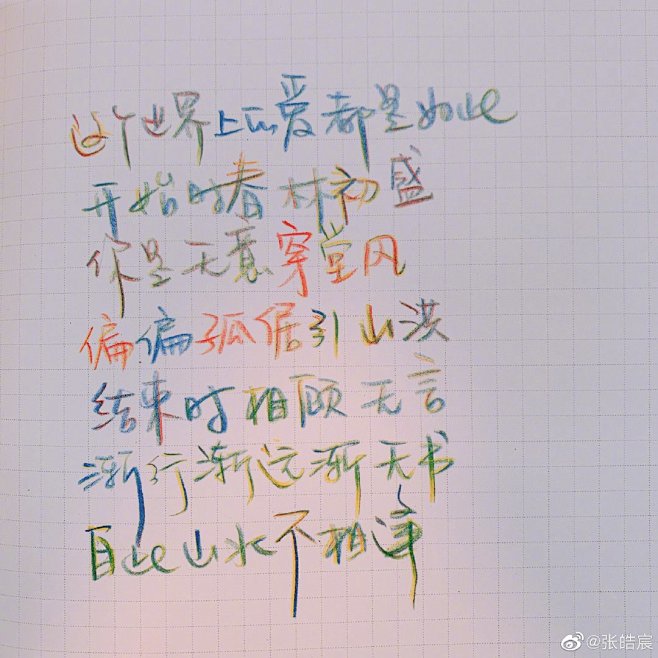 这个世界上的爱都是如此
开始时春林初盛
你是无意穿堂风
偏偏孤倨引山洪
结束时相顾无言
渐行渐远渐无书
自此山水不相逢
@张皓宸